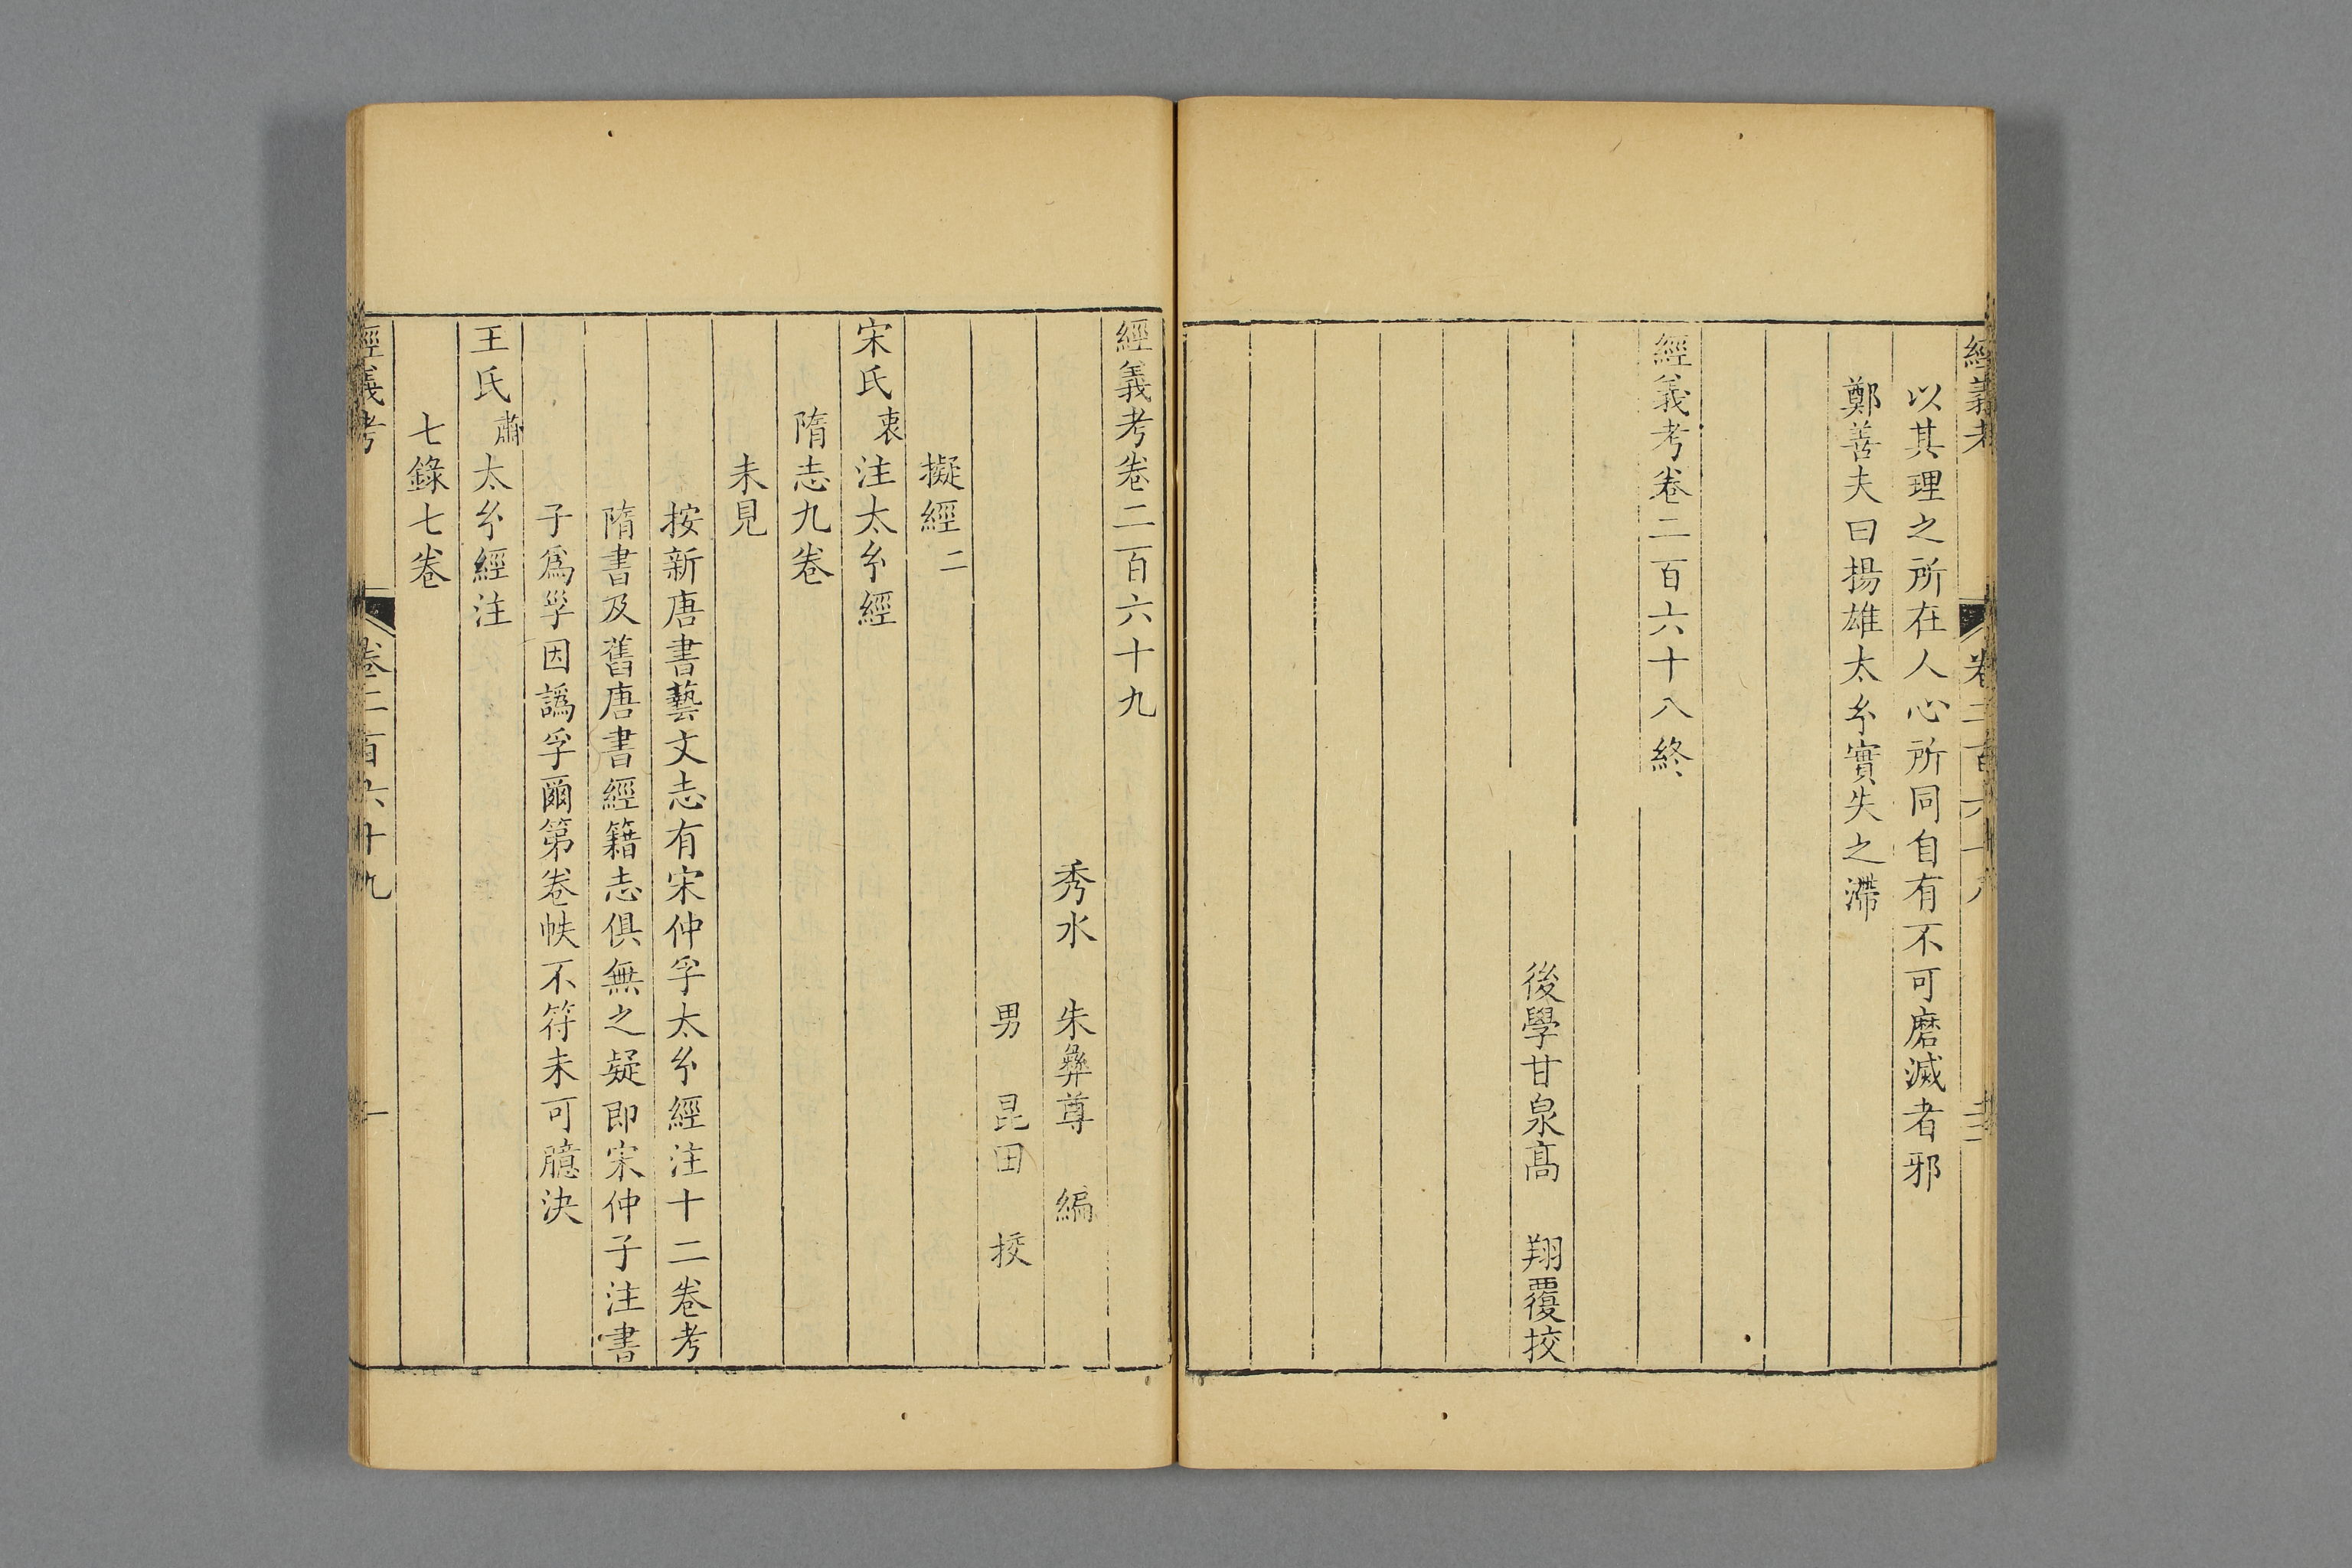 經義考　卷二百六十八
以其理之所在人心所同自有不可磨滅者邪
鄭善夫曰揚雄太𤣥實失之滯
經義考卷二百六十八終
後學甘泉高　翔覆挍
經義考卷二百六十九
秀水　朱彝尊　編
男　昆田　挍
擬經二
宋氏衷注太𤣥經
隋志九卷
未見
按新唐書藝文志有宋仲孚太𤣥經注十二卷考
隋書及舊唐書經籍志俱無之疑即宋仲子注書
子爲㜽因譌孚爾第卷帙不符未可臆決
王氏肅太𤣥經注
七錄七卷
經義考　卷二百六十九　一